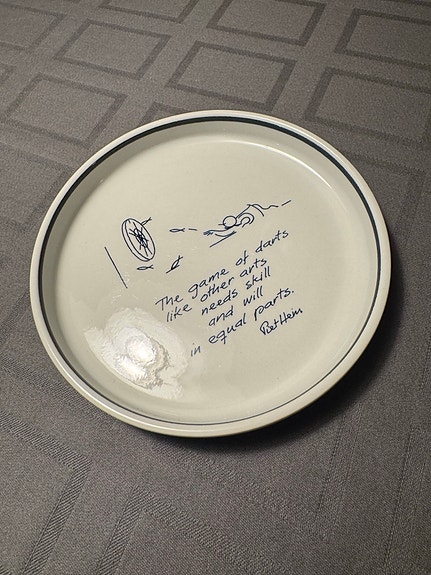 The game of darts
like other arts
needs skill
and will
in equal parts.